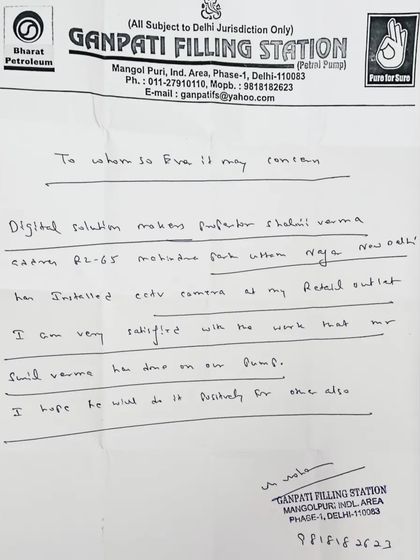 (All Subject to Delhi Jurisdiction Only)
GANPATI FILLING STATION
(Petrol Pump)
Bharat
Petroleum
Mangol Puri, Ind. Area, Phase-1, Delhi-110083
Ph. : 011-27910110, Mopb. : 9818182623
E-mail : ganpatifs@yahoo.com
Pure for Sure
To whom so Eva it may concern
Digital solution makers profertor Shalini verma
address R2-65 mohindra park uttam Nagar New Delhi
has Installed cctv camera at my Retail outlet
I am very satisfied with the work that mr
Sunil verma has done on our Pump.
I hope he will do it positively for other also
GANPATI FILLING STATION
MANGOLPURI INDL. AREA
PHASE-1, DELHI-110083
9818182623